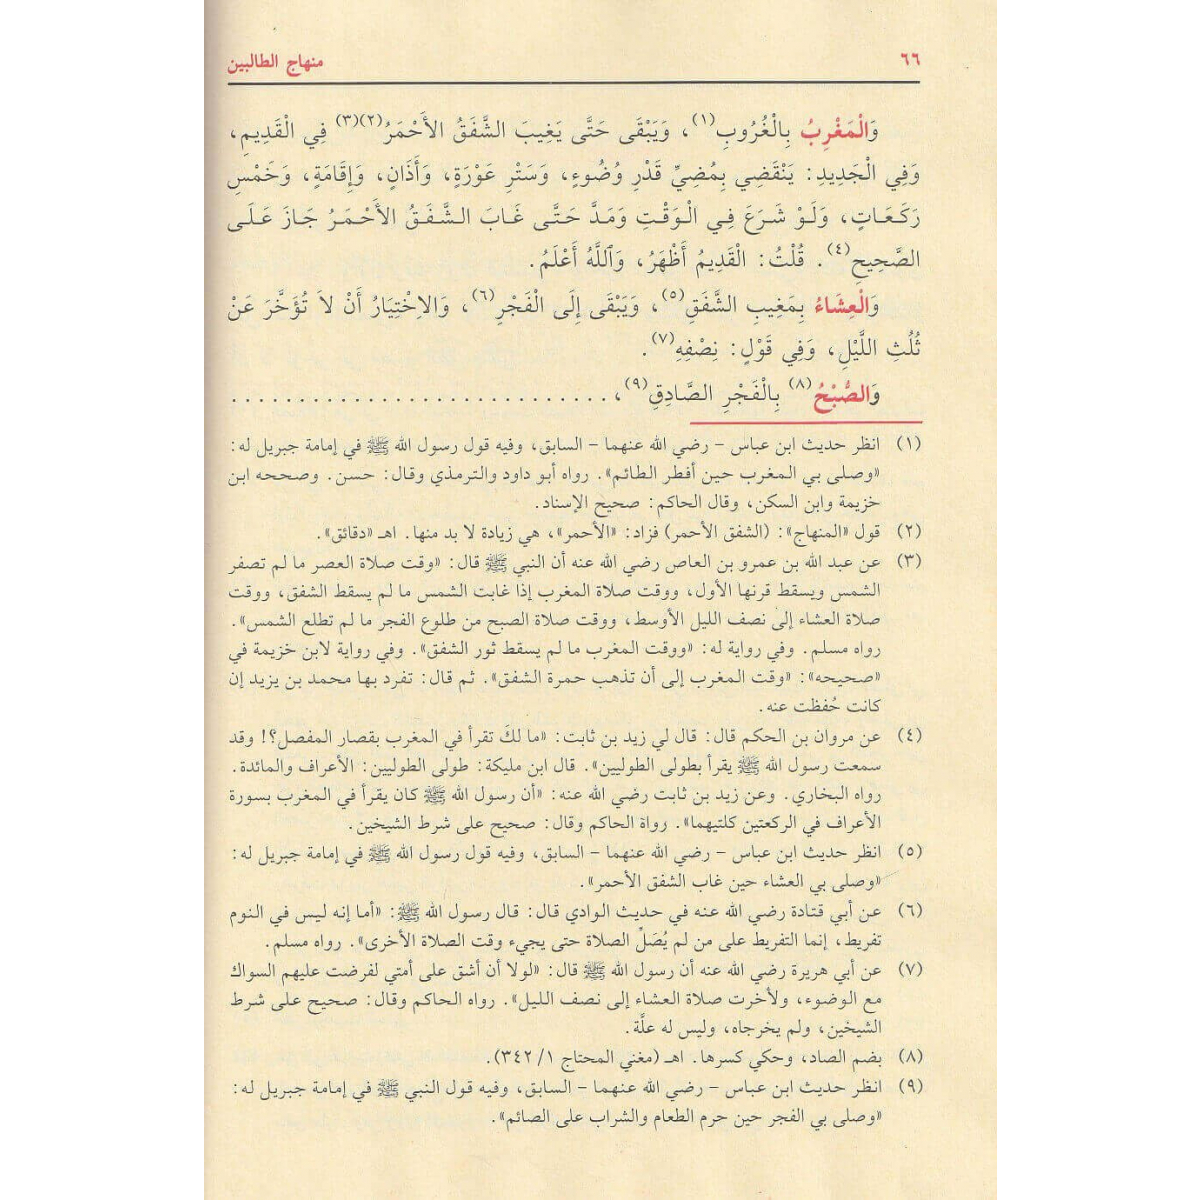 ٦٦ منهاج الطالبين
وَالْمَغْرِبُ بِالْغُرُوبِ(١)، وَيَبْقَى حَتَّى يَغِيبَ الشَّفَقُ الأَحْمَرُ(٢)(٣) فِي الْقَدِيمِ،
وَفِي الْجَدِيدِ: يَنْقَضِي بِمُضِيِّ قَدْرِ وُضُوءٍ، وَسَتْرِ عَوْرَةٍ، وَأَذَانٍ، وَإِقَامَةٍ، وَخَمْسِ
رَكَعَاتٍ، وَلَوْ شَرَعَ فِي الْوَقْتِ وَمَدَّ حَتَّى غَابَ الشَّفَقُ الأَحْمَرُ جَازَ عَلَى
الصَّحِيحِ(٤). قُلْتُ: الْقَدِيمُ أَظْهَرُ، وَاَللَّهُ أَعْلَمُ.
وَالْعِشَاءُ بِمَغِيبِ الشَّفَقِ(٥)، وَيَبْقَى إِلَى الْفَجْرِ(٦)، وَالاِخْتِيَارُ أَنْ لاَ تُؤَخَّرَ عَنْ
ثُلُثِ اللَّيْلِ، وَفِي قَوْلٍ: نِصْفِهِ(٧).
وَالصُّبْحُ(٨) بِالْفَجْرِ الصَّادِقِ(٩)، . . . . . . . . . . . . . . . . . . . . . . . . . . . .
(١) انظر حديث ابن عباس - رضي الله عنهما - السابق، وفيه قول رسول الله ﷺ في إمامة جبريل له:
«وصلى بي المغرب حين أفطر الطائم». رواه أبو داود والترمذي وقال: حسن. وصححه ابن
خزيمة وابن السكن، وقال الحاكم: صحيح الإسناد.
(٢) قول «المنهاج»: (الشفق الأحمر) فزاد: «الأحمر»، هي زيادة لا بد منها. اهـ «دقائق».
(٣) عن عبد الله بن عمرو بن العاص رضي الله عنه أن النبي ﷺ قال: «وقت صلاة العصر ما لم تصفر
الشمس ويسقط قرنها الأول، ووقت صلاة المغرب إذا غابت الشمس ما لم يسقط الشفق، ووقت
صلاة العشاء إلى نصف الليل الأوسط، ووقت صلاة الصبح من طلوع الفجر ما لم تطلع الشمس».
رواه مسلم. وفي رواية له: «ووقت المغرب ما لم يسقط ثور الشفق». وفي رواية لابن خزيمة في
«صحيحه»: «وقت المغرب إلى أن تذهب حمرة الشفق». ثم قال: تفرد بها محمد بن يزيد إن
كانت حُفظت عنه.
(٤) عن مروان بن الحكم قال: قال لي زيد بن ثابت: «ما لكَ تقرأ في المغرب بقصار المفصل؟! وقد
سمعت رسول الله ﷺ يقرأ بطولى الطوليين». قال ابن مليكة: طولى الطوليين: الأعراف والمائدة.
رواه البخاري. وعن زيد بن ثابت رضي الله عنه: «أن رسول الله ﷺ كان يقرأ في المغرب بسورة
الأعراف في الركعتين كلتيهما». رواة الحاكم وقال: صحيح على شرط الشيخين.
(٥) انظر حديث ابن عباس - رضي الله عنهما - السابق، وفيه قول رسول الله ﷺ في إمامة جبريل له:
«وصلى بي العشاء حين غاب الشفق الأحمر».
(٦) عن أبي قتادة رضي الله عنه في حديث الوادي قال: قال رسول الله ﷺ: «أما إنه ليس في النوم
تفريط، إنما التفريط على من لم يُصَلِّ الصلاة حتى يجيء وقت الصلاة الأخرى». رواه مسلم.
(٧) عن أبي هريرة رضي الله عنه أن رسول الله ﷺ قال: «لولا أن أشق على أمتي لفرضت عليهم السواك
مع الوضوء، ولأخرت صلاة العشاء إلى نصف الليل». رواه الحاكم وقال: صحيح على شرط
الشيخين، ولم يخرجاه، وليس له علَّة.
(٨) بضم الصاد، وحكي كسرها. اهـ (مغني المحتاج ١/ ٣٤٢).
(٩) انظر حديث ابن عباس - رضي الله عنهما - السابق، وفيه قول النبي ﷺ في إمامة جبريل له:
«وصلى بي الفجر حين حرم الطعام والشراب على الصائم».